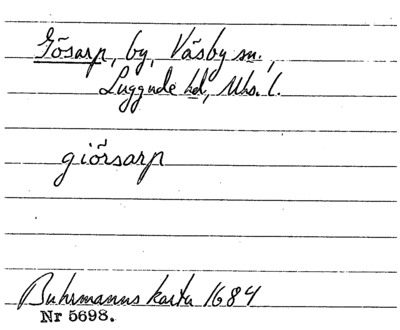 Gösarp, by, Väsby sn.,
Luggude hd, Mhs. l.
giörsarp
Buhrmanns karta 1684
Nr 5698.